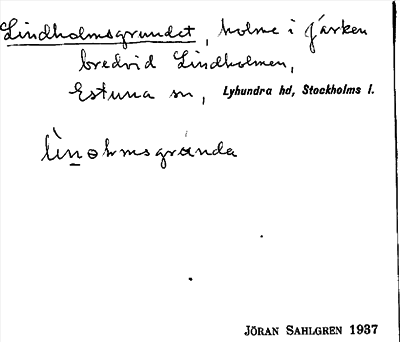 Lindholmsgrundet, holme i Järken
bredvid Lindholmen,
Estuna sn, Lyhundra hd, Stockholms l.
lìnɵlmsgrúnda
JÖRAN SAHLGREN 1937